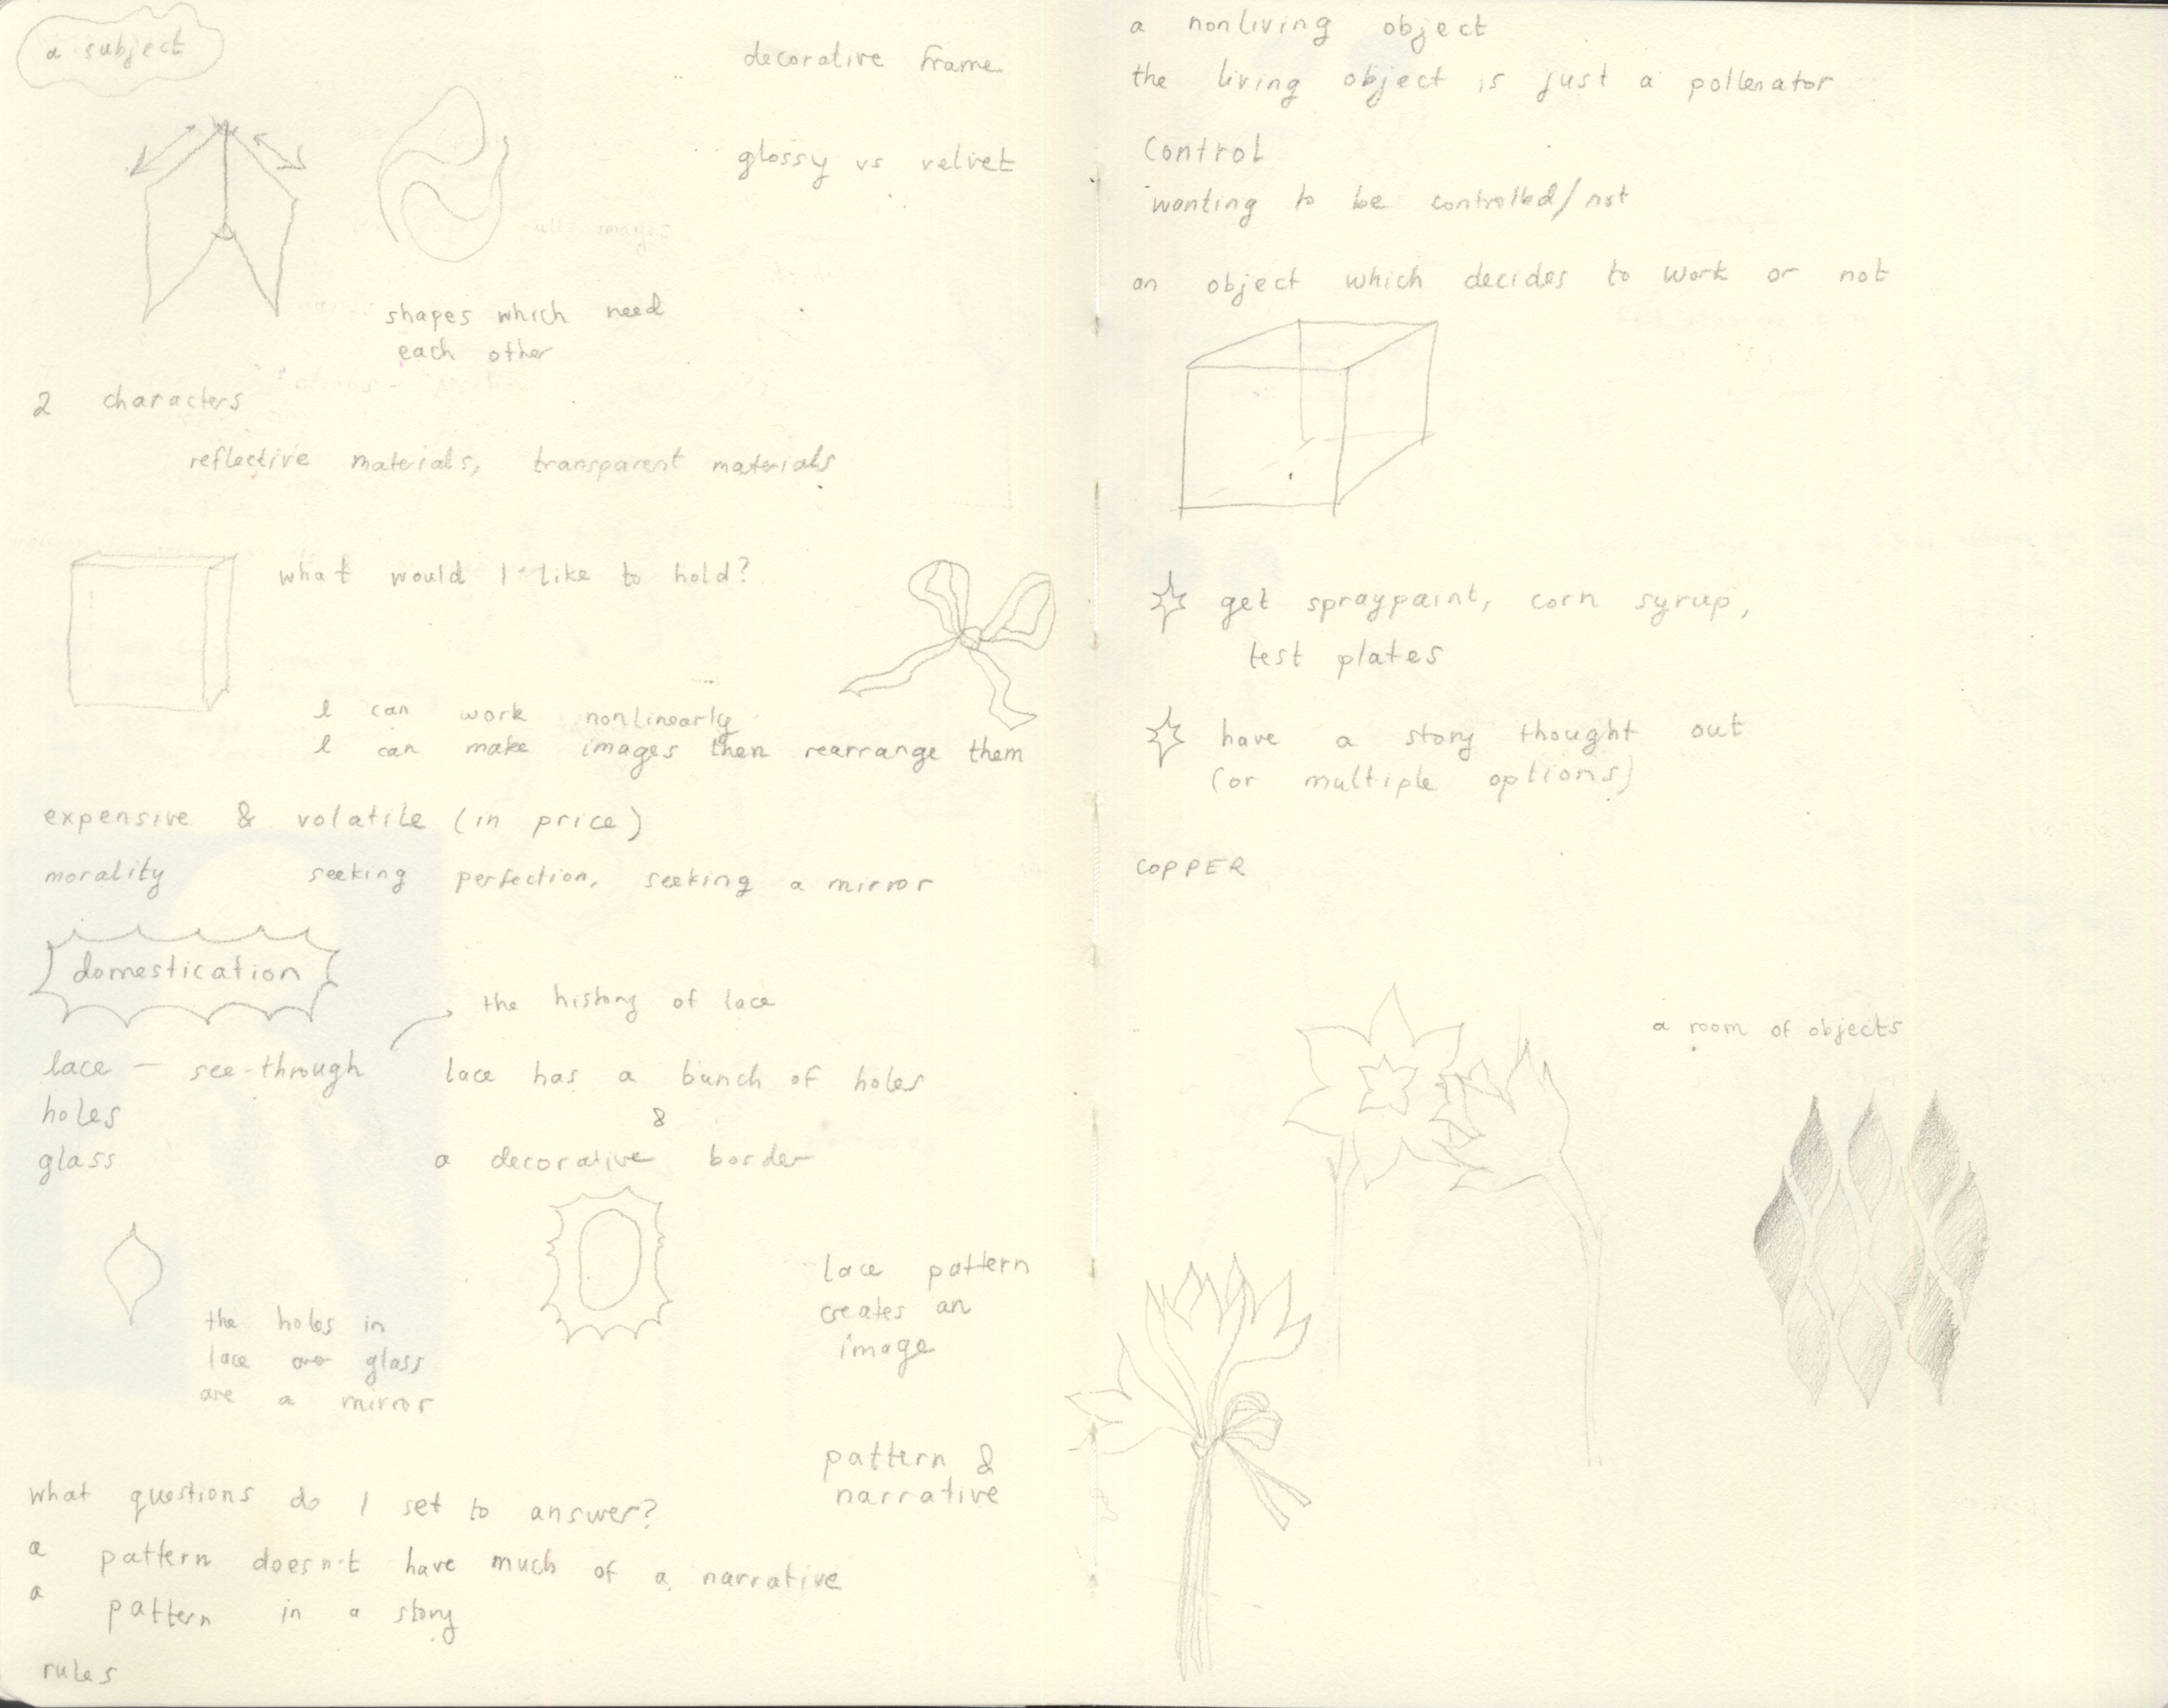 a subject
decorative frame
glossy vs velvet
shapes which need
each other
2 characters
reflective materials, transparent materials
what would I like to hold?
I can work nonlinearly
I can make images then rearrange them
expensive & volatile (in price)
morality seeking perfection, seeking a mirror
domestication
the history of lace
lace — see-through
lace has a bunch of holes
holes
&
glass
a decorative border
the holes in
lace glass
are a mirror
lace pattern
creates an
image
pattern &
narrative
what questions do I set to answer?
a pattern doesn't have much of a narrative
a pattern in a story
rules
a nonliving object
the living object is just a pollenator
Control
wanting to be controlled/not
an object which decides to work or not
get spraypaint, corn syrup,
test plates
have a story thought out
(or multiple options)
COPPER
a room of objects